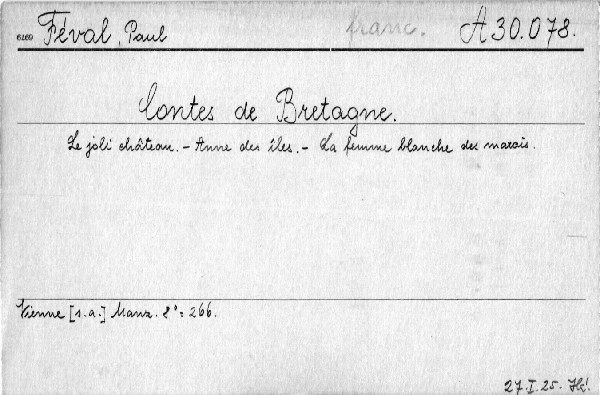 6469 Féval, Paul franc. A 30.078.
Contes de Bretagne.
Le joli château. – Anne des îles. – La femme blanche des marais.
Vienne [s.a.] Manz. 8° = 266.
27.I.25.